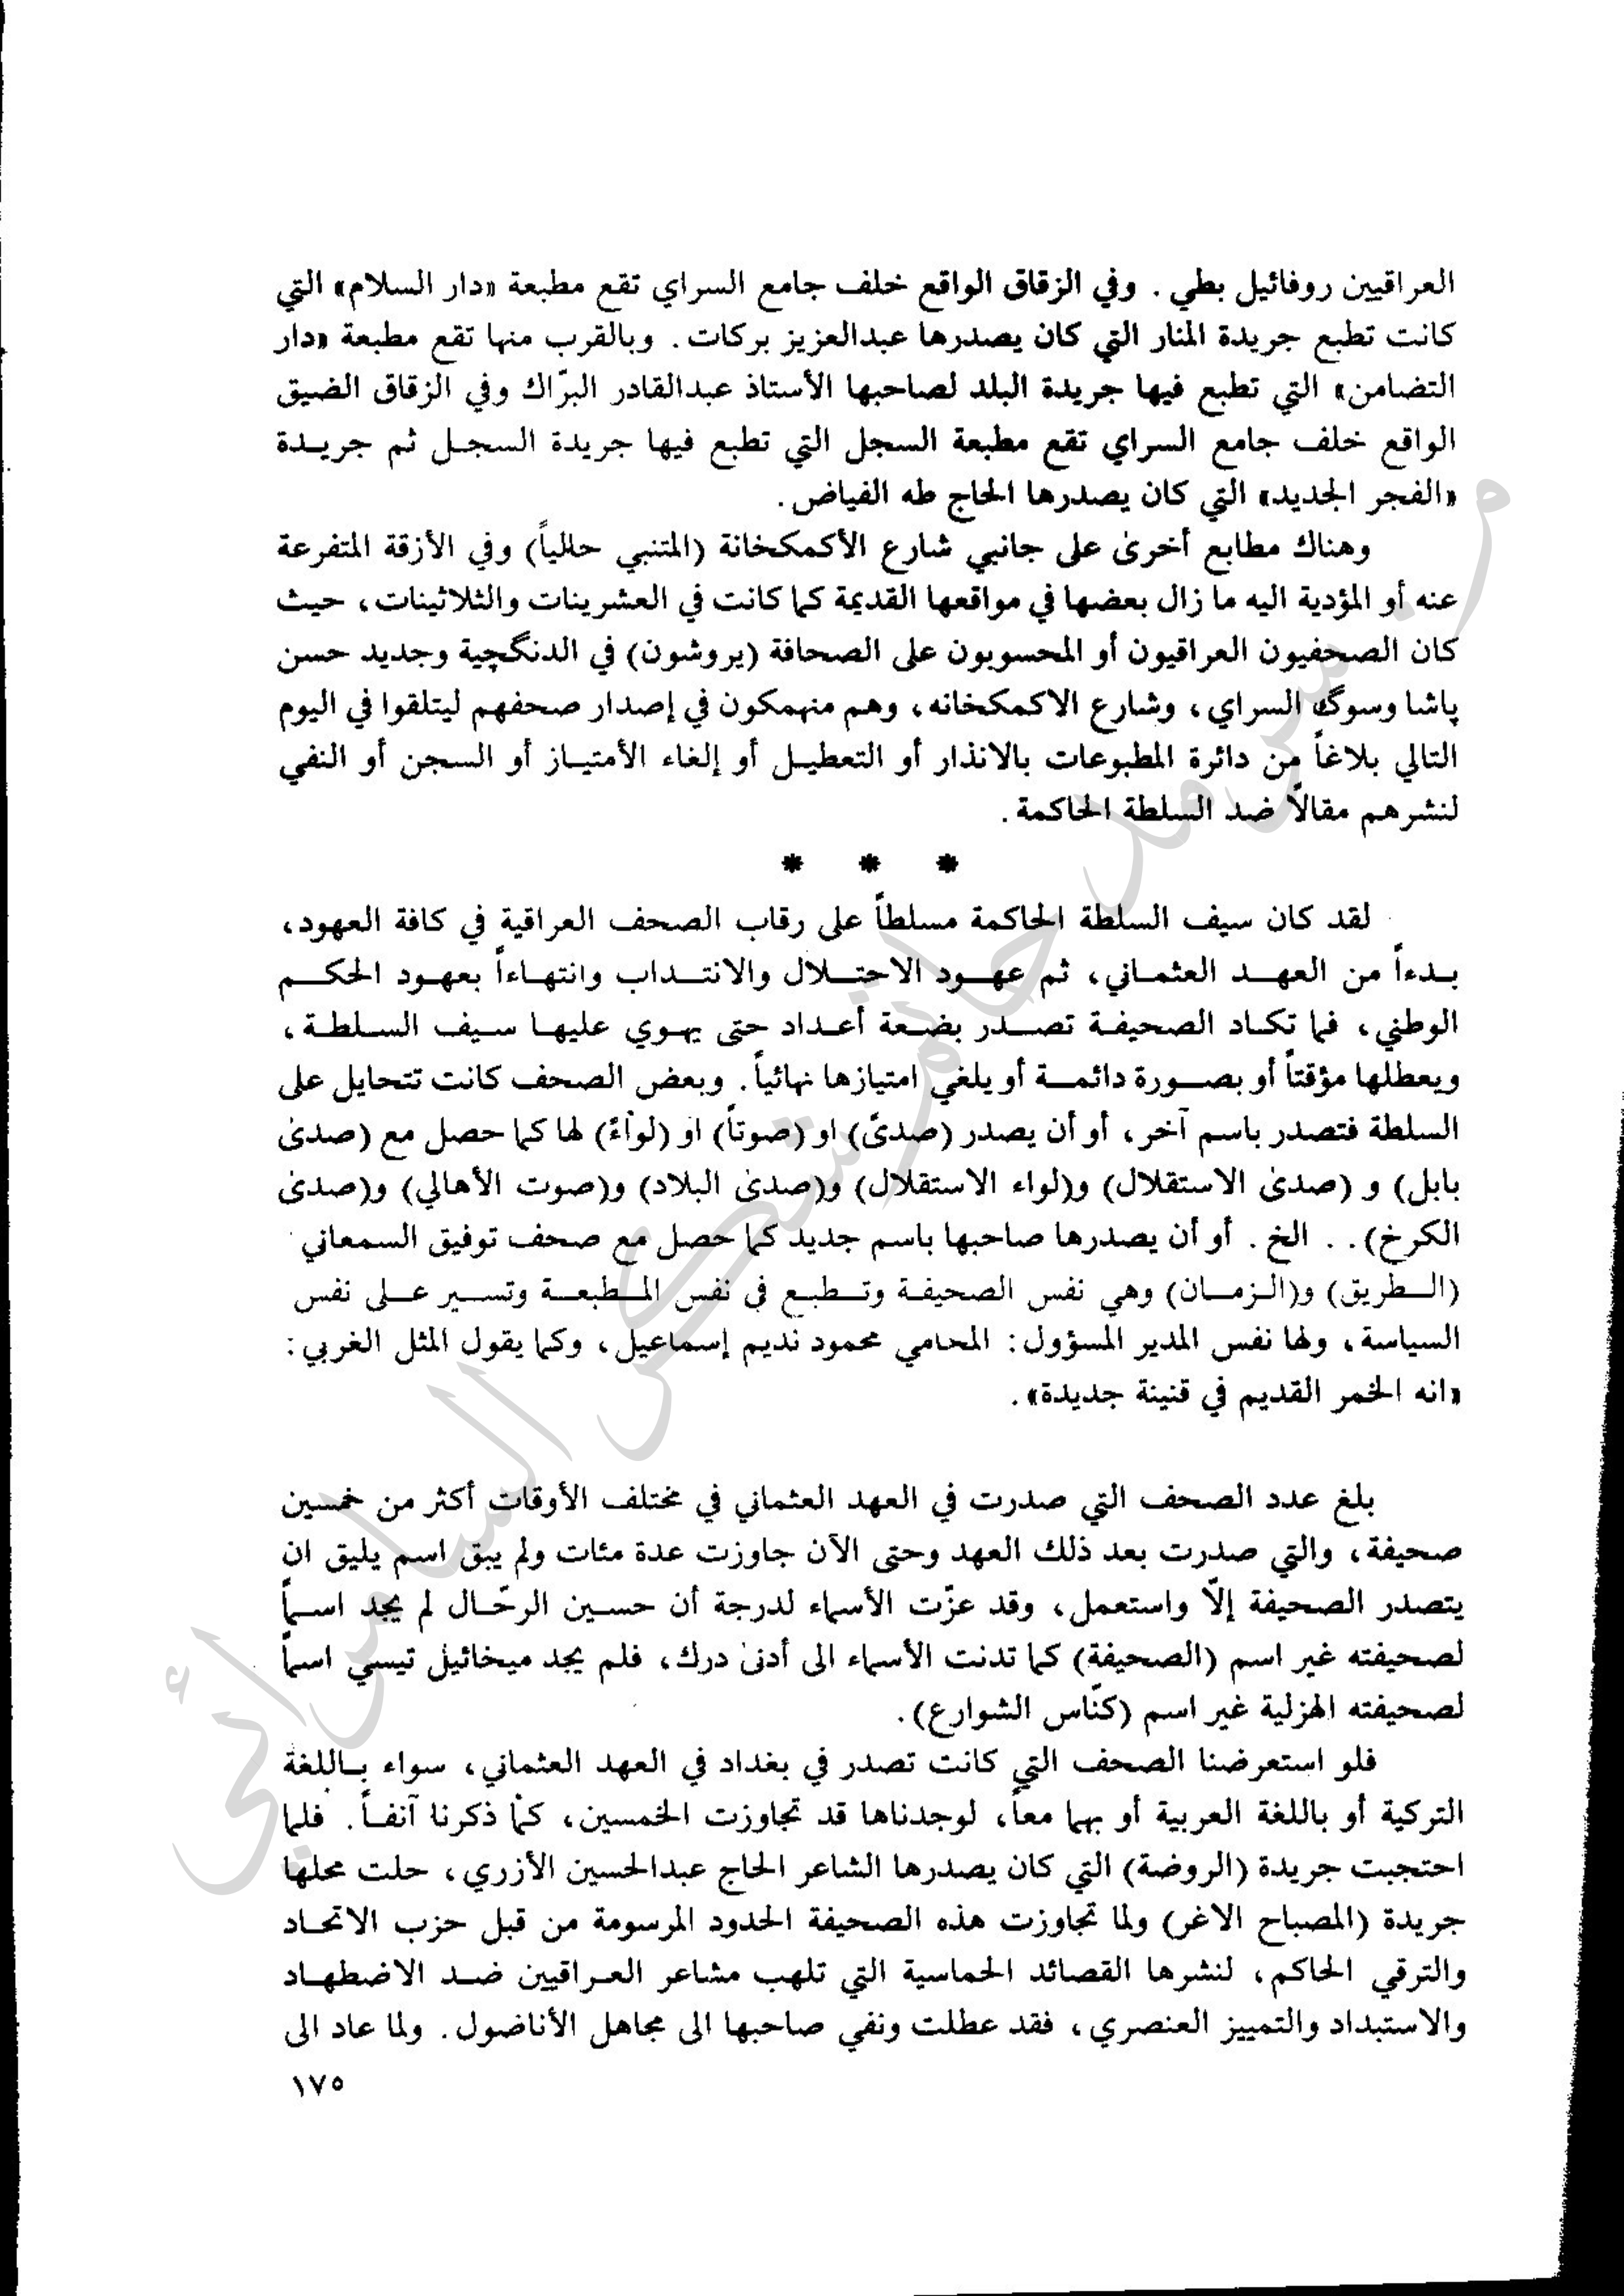 العراقيين روفائيل بطي . وفي الزقاق الواقع خلف جامع السراي تقع مطبعة «دار السلام» التي
كانت تطبع جريدة المنار التي كان يصدرها عبدالعزيز بركات . وبالقرب منها تقع مطبعة «دار
التضامن» التي تطبع فيها جريدة البلد لصاحبها الأستاذ عبدالقادر البرّاك وفي الزقاق الضيق
الواقع خلف جامع السراي تقع مطبعة السجل التي تطبع فيها جريدة السجل ثم جريدة
«الفجر الجديد» التي كان يصدرها الحاج طه الفياض .
وهناك مطابع أخرى على جانبي شارع الأكمكخانة (المتنبي حالياً) وفي الأزقة المتفرعة
عنه أو المؤدية اليه ما زال بعضها في مواقعها القديمة كما كانت في العشرينات والثلاثينات ، حيث
كان الصحفيون العراقيون أو المحسوبون على الصحافة (يروشون) في الدنگچية وجديد حسن
پاشا وسوگ السراي ، وشارع الاكمكخانه ، وهم منهمكون في إصدار صحفهم ليتلقوا في اليوم
التالي بلاغاً من دائرة المطبوعات بالانذار أو التعطيل أو إلغاء الأمتياز أو السجن أو النفي
لنشرهم مقالاً ضد السلطة الحاكمة .
* * *
لقد كان سيف السلطة الحاكمة مسلطاً على رقاب الصحف العراقية في كافة العهود ،
بدءاً من العهد العثماني ، ثم عهود الاحتلال والانتداب وانتهاءاً بعهود الحكم
الوطني ، فما تكاد الصحيفة تصدر بضعة أعداد حتى يهوي عليها سيف السلطة ،
ويعطلها مؤقتاً أو بصورة دائمة أو يلغي امتيازها نهائياً . وبعض الصحف كانت تتحايل على
السلطة فتصدر باسم آخر ، أو أن يصدر (صدىً) او (صوتاً) او (لواءً) لها كما حصل مع (صدى
بابل) و (صدى الاستقلال) و(لواء الاستقلال) و(صدى البلاد) و(صوت الأهالي) و(صدى
الكرخ) . . الخ . أو أن يصدرها صاحبها باسم جديد كما حصل مع صحف توفيق السمعاني
(الطريق) و(الزمان) وهي نفس الصحيفة وتطبع في نفس المطبعة وتسير على نفس
السياسة ، ولها نفس المدير المسؤول : المحامي محمود نديم إسماعيل ، وكما يقول المثل الغربي :
«انه الخمر القديم في قنينة جديدة» .
بلغ عدد الصحف التي صدرت في العهد العثماني في مختلف الأوقات أكثر من خمسين
صحيفة ، والتي صدرت بعد ذلك العهد وحتى الآن جاوزت عدة مئات ولم يبق اسم يليق ان
يتصدر الصحيفة إلّا واستعمل ، وقد عزّت الأسماء لدرجة أن حسين الرحّال لم يجد اسماً
لصحيفته غير اسم (الصحيفة) كما تدنت الأسماء الى أدنى درك ، فلم يجد ميخائيل تيسي اسماً
لصحيفته الهزلية غير اسم (كنّاس الشوارع) .
فلو استعرضنا الصحف التي كانت تصدر في بغداد في العهد العثماني ، سواء باللغة
التركية أو باللغة العربية أو بهما معاً ، لوجدناها قد تجاوزت الخمسين ، كما ذكرنا آنفاً . فلما
احتجبت جريدة (الروضة) التي كان يصدرها الشاعر الحاج عبدالحسين الأزري ، حلت محلها
جريدة (المصباح الاغر) ولما تجاوزت هذه الصحيفة الحدود المرسومة من قبل حزب الاتحاد
والترقي الحاكم ، لنشرها القصائد الحماسية التي تلهب مشاعر العراقيين ضد الاضطهاد
والاستبداد والتمييز العنصري ، فقد عطلت ونفي صاحبها الى مجاهل الأناضول . ولما عاد الى
١٧٥
سرمد حاتم شكر السامرائي